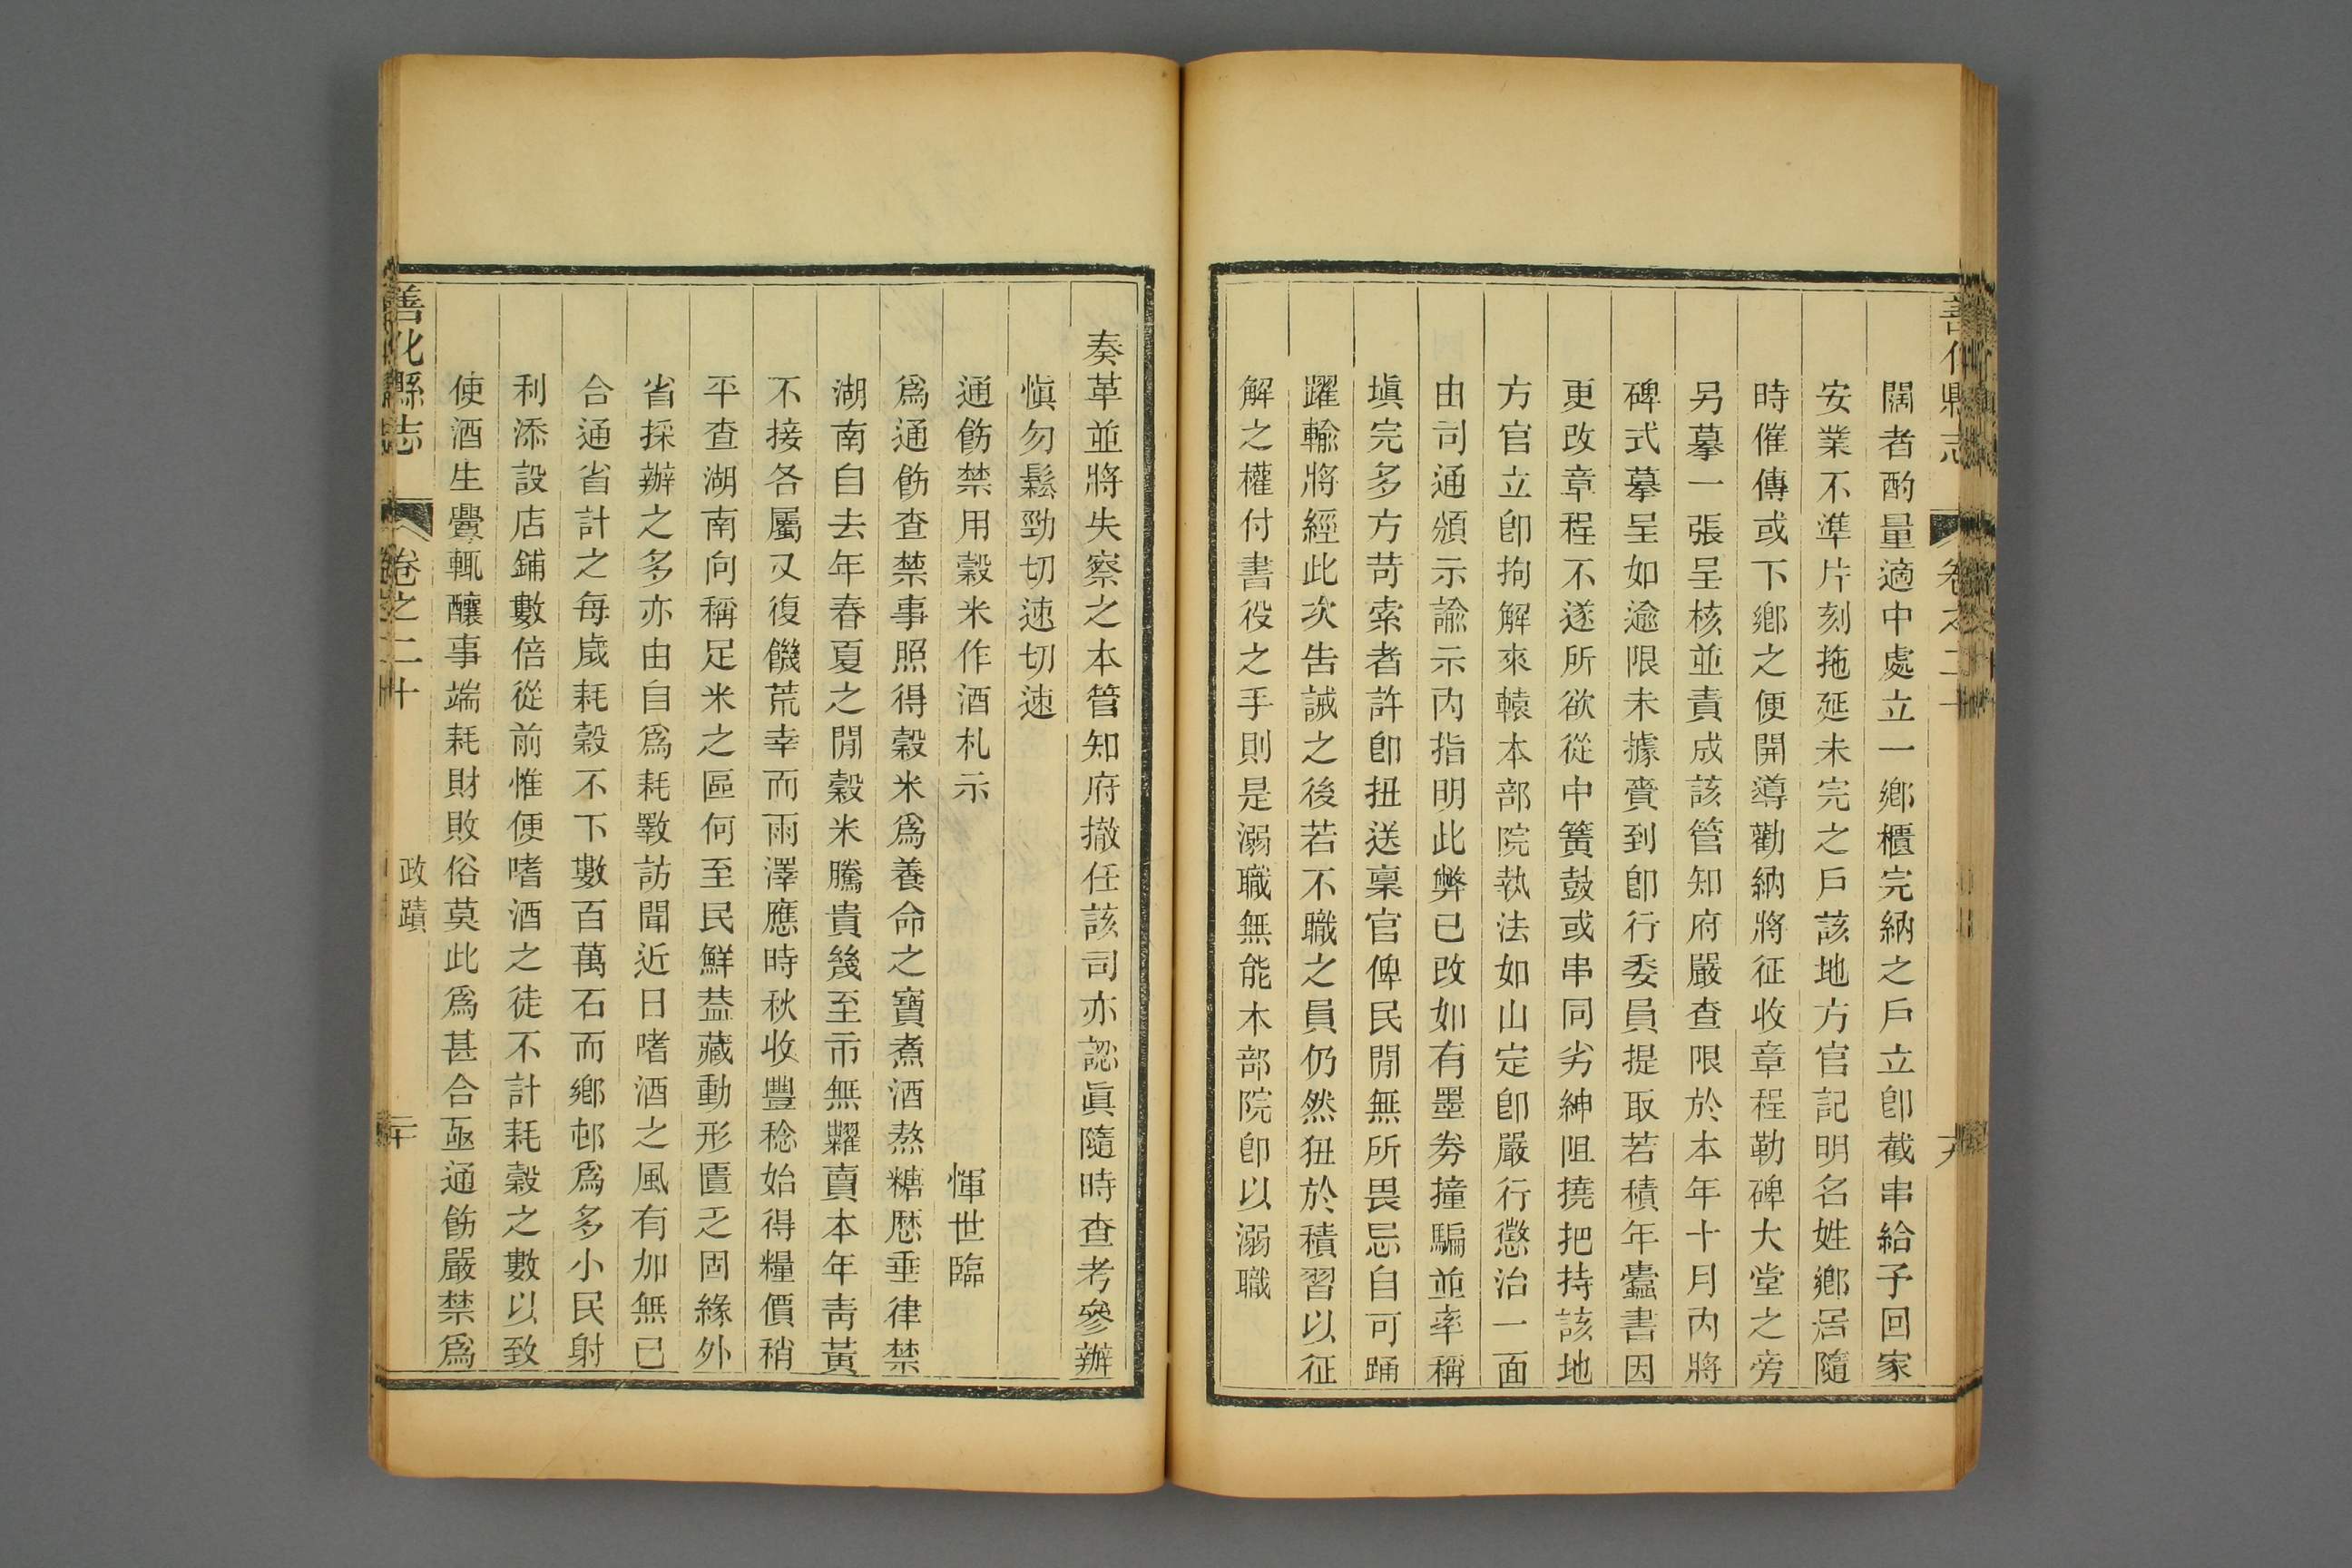 善化縣志 卷之二十 十九
闊者酌量適中處立一鄉櫃完納之戶立卽截串給予回家
安業不準片刻拖延未完之戶該地方官記明名姓鄉居隨
時催傳或下鄉之便開導勸納將征收章程勒碑大堂之旁
另摹一張呈核並責成該管知府嚴查限於本年十月內將
碑式摹呈如逾限未據賫到卽行委員提取若積年蠹書因
更改章程不遂所欲從中簧鼓或串同劣紳阻撓把持該地
方官立卽拘解來轅本部院執法如山定卽嚴行懲治一面
由司通頒示諭示內指明此弊已改如有墨劵撞騙並率稱
塡完多方苛索者許卽扭送稟官俾民閒無所畏忌自可踊
躍輸將經此次告誡之後若不職之員仍然狃於積習以征
解之權付書役之手則是溺職無能本部院卽以溺職
奏革並將失察之本管知府撤任該司亦認眞隨時查考參辦
愼勿鬆勁切速切速
通飭禁用穀米作酒札示 惲世臨
爲通飭查禁事照得穀米爲養命之寶煮酒熬糖懕垂律禁
湖南自去年春夏之閒穀米騰貴幾至市無糶賣本年靑黃
不接各屬又復饑荒幸而雨澤應時秋收豐稔始得糧價稍
平查湖南向稱足米之區何至民鮮葢藏動形匱乏固緣外
省採辦之多亦由自爲耗斁訪聞近日嗜酒之風有加無已
合通省計之每歲耗穀不下數百萬石而鄉邨爲多小民射
利添設店鋪數倍從前惟便嗜酒之徒不計耗穀之數以致
使酒生釁輒釀事端耗財敗俗莫此爲甚合亟通飭嚴禁爲
善化縣志 卷之二十 政蹟 二十